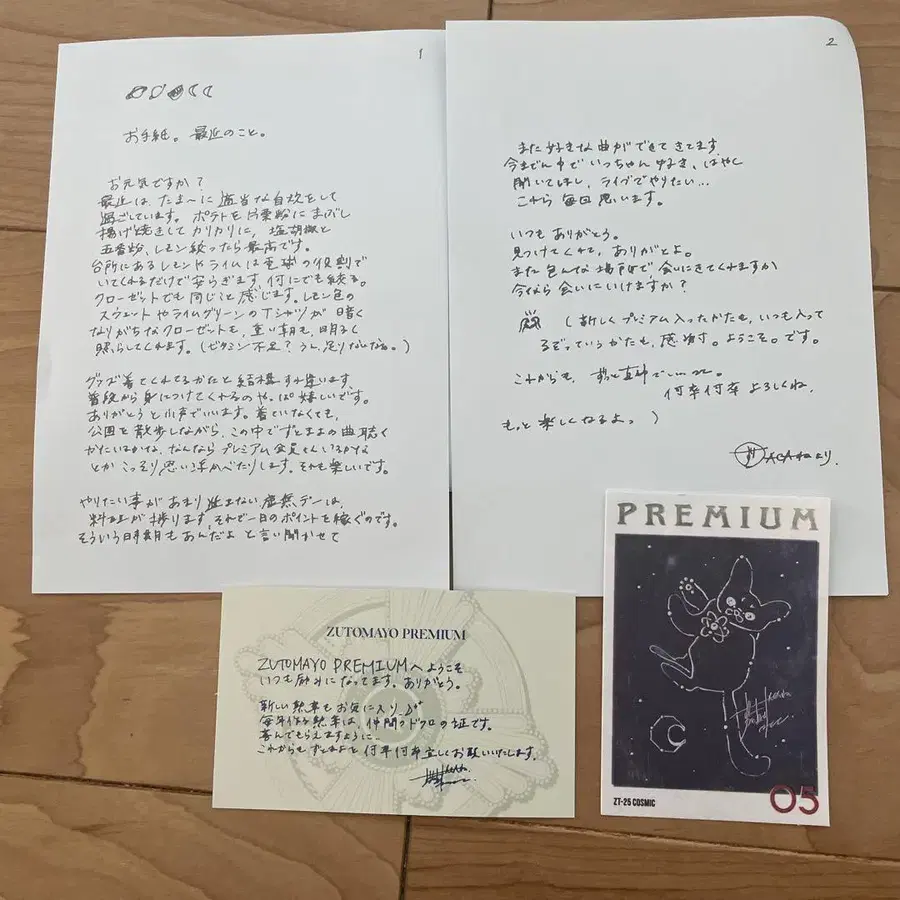 1
お手紙。最近のこと。
お元気ですか?
最近は、たま〜に適当な自炊をして
過ごしています。ポテトを片栗粉にまぶし
揚げ焼きしてカリカリに、塩胡椒と
五香粉、レモン絞ったら最高です。
台所にあるレモンやライムは電球の役割で
いてくれるだけで安らぎます。何にでも絞る。
クローゼットでも同じこと感じます。レモン色の
スウェットやライムグリーンのTシャツが暗く
なりがちなクローゼットも、重い朝も、明るく
照らしてくれます。(ビタミン不足?うん、足りないなぁ。)
グッズ着てくれてるかたと結構すれ違います。
普段から身につけてくれるのやっぱ嬉しいです。
ありがとうと小声でいいます。着ていなくても、
公園を散歩しながら、この中でずとまよの曲聴く
かたいるかな、なんならプレミアム会員さんいるかな
とかこっそり思い浮かべたりします。それも楽しいです。
やりたい事があまり進まない虚無デーは、
料理が捗ります。それで一日のポイントを稼ぐのです。
そういう時期もあんだよ と言い聞かせて
2
また好きな曲ができてきてます。
今までん中でいっちゃん好き、はやく
聞いてほしい、ライブでやりたい...
これから 毎回思います。
いつもありがとう。
見つけてくれて、ありがとよ。
また色んな場所で、会いにきてくれますか
今なら会いにいけますか?
(新しくプレミアム入ったかたも、いつも入って
るぞっていうかたも、感謝。ようこそ。です。
これからも、ずっと真夜中でいいのに。
何卒何卒よろしくね。
もっと楽しくなるよっ)
ACAねより.
PREMIUM
ZT-25 COSMIC
05
ZUTOMAYO PREMIUM
ZUTOMAYO PREMIUMへようこそ
いつも励みになってます。ありがとう。
新しい勲章もお気に入り
毎年作る勲章は、仲間の証です。
喜んでもらえますように…
これからもずとまよを何卒何卒宜しくお願いいたします。